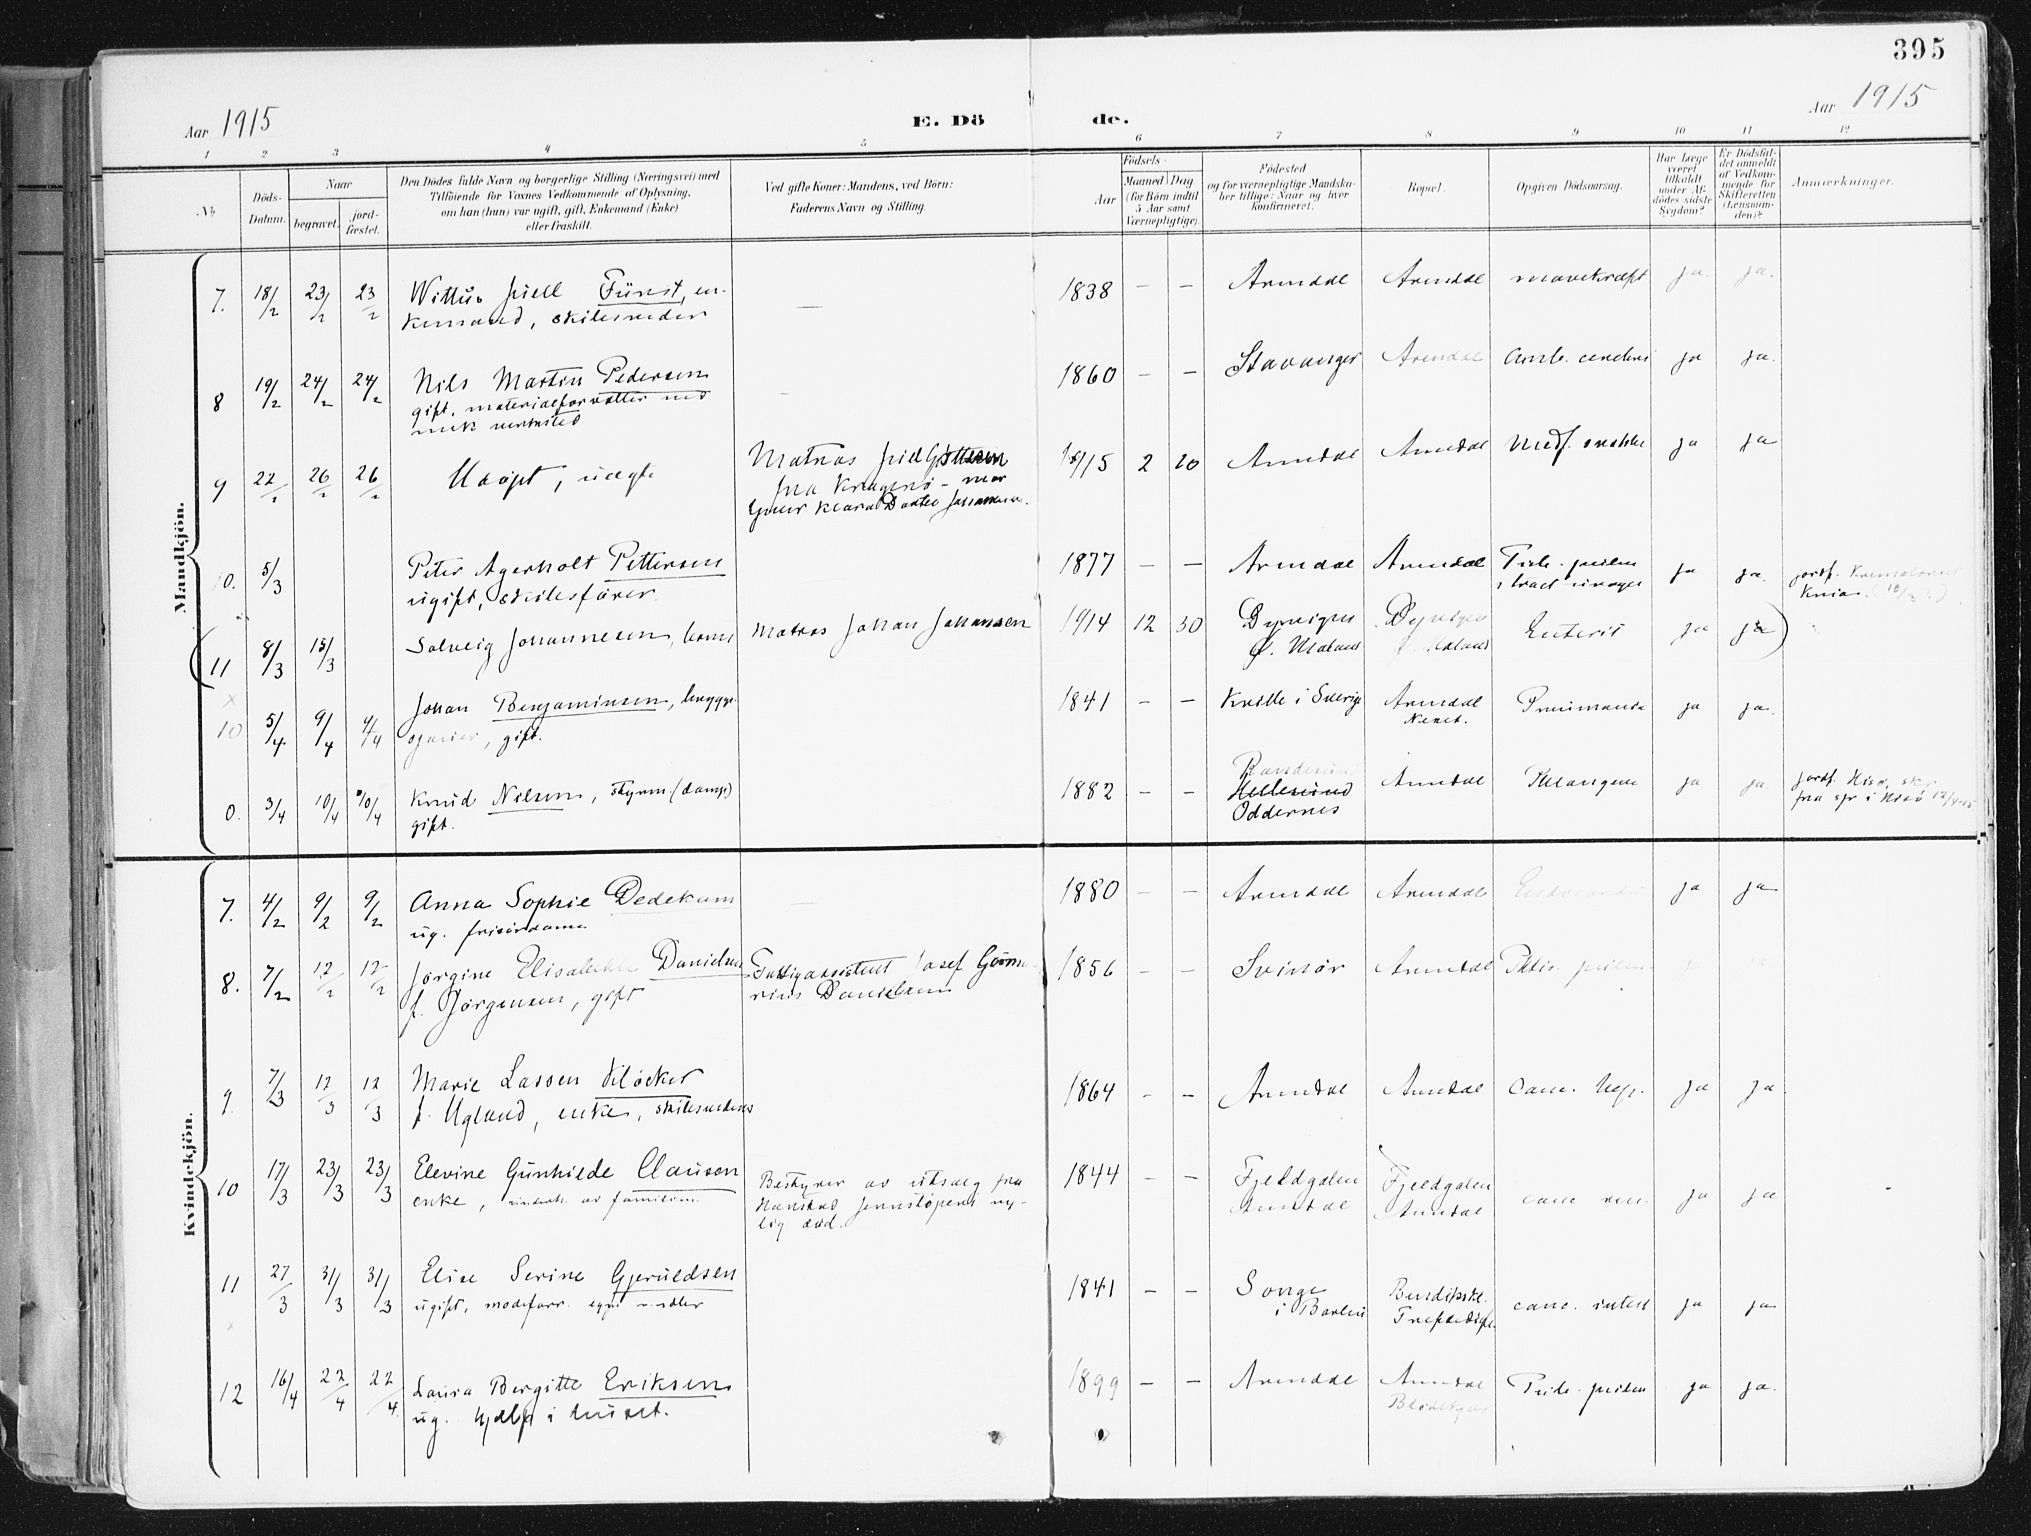 395
Aar 1915
E. Dö
de.
Aar 1915
1 2 3 4 5 6 7 8 9 10 11 12
No
Döds-
Datum.
Naar
begravet.
jord-
fæstet.
Den Dödes fulde Navn og borgerlige Stilling (Næringsvei) med
Tilföiende for Voxnes Vedkommende af Oplysning,
om han (hun) var ugift, gift, Enkemand (Enke)
eller fraskilt.
Ved gifte Koner: Mandens, ved Börn:
Faderens Navn og Stilling.
Födsels-
Aar
Maaned Dag
(for Börn indtil
5 Aar samt
Værnepligtige).
Födested
og for værnepligtige Mandska-
ber tillige: Naar og hvor
konfirmeret.
Bopæl.
Opgiven Dödsaarsag.
Har Læge
været
tilkaldt
under Af-
dödes sidste
Sygdom?
Er Dödsfal-
det anmeldt
af Vedkom-
mende for
Skifteretten
(Lensman-
den)?
Anmærkninger.
Mandkjön.
7. 18/2 23/2 23/2 Fürst, en-
kemand, — 1838 — — Arendal Arendal mavekræft ja ja.
8 19/2 24/2 24/2 Nils Martin Pedersen
gift, materialforvalter ved
mek verksted — 1860 — — Stavanger Arendal ja ja.
9 22/2 26/2 26/2 Udöpt, uægte Matros
fra Kragerø - mor
1915 2 20 Arendal Arendal Medf. ja ja
10. 5/3 Peter Agerholt Pettersen
ugift, skibsfører. 1877 — — Arendal Arendal ja ja.
11 8/3 15/3 Solveig Johannesen, Matros Johan Johansen 1914 12 30 Enterit ja ja
10 5/4 9/4 9/4 Johan Benjaminsen, brygge-
gift. 1841 — — i Sverige Arendal ja ja.
0. 3/4 10/4 10/4 Knud Nilsen, styrm. (damp)
gift. 1882 — — Hellesund
Oddernes Arendal ja ja jordf. Hisø,
12/4-15
Kvindekjön.
7. 4/2 9/2 9/2 Anna Sophie Dedekam
ug. frisördame — 1880 — — Arendal Arendal ja ja
8. 7/2 12/2 12/2 Jørgine Elisabeth Danielsen
f. Jørgensen, gift Fattigassistent Josef Gunne-
rius Danielsen 1856 — — Svinør Arendal
9. 7/3 12/3 12/3 Marie Lassen Kløcker
f. Ugland, enke, 1864 — — Arendal Arendal Canc. hep. ja ja
10 17/3 23/3 23/3 Elevine Gunhilde Clausen
enke, underh. av familien. Bestyrer av utsalg fra
ny-
lig død. 1844 — — Fjeldgaten
Arendal Fjeldgaten
Arendal canc ven. ja ja
11 27/3 31/3 31/3 Elise Serine Gjeruldsen
ugift, modeforr. egne midler 1841 — — Songe
i Barbu canc. intest ja ja
12 16/4 22/4 22/4. Laura Bergitte Eriksen
ug. hjelp i huset. 1899 — — Arendal Arendal ja ja.